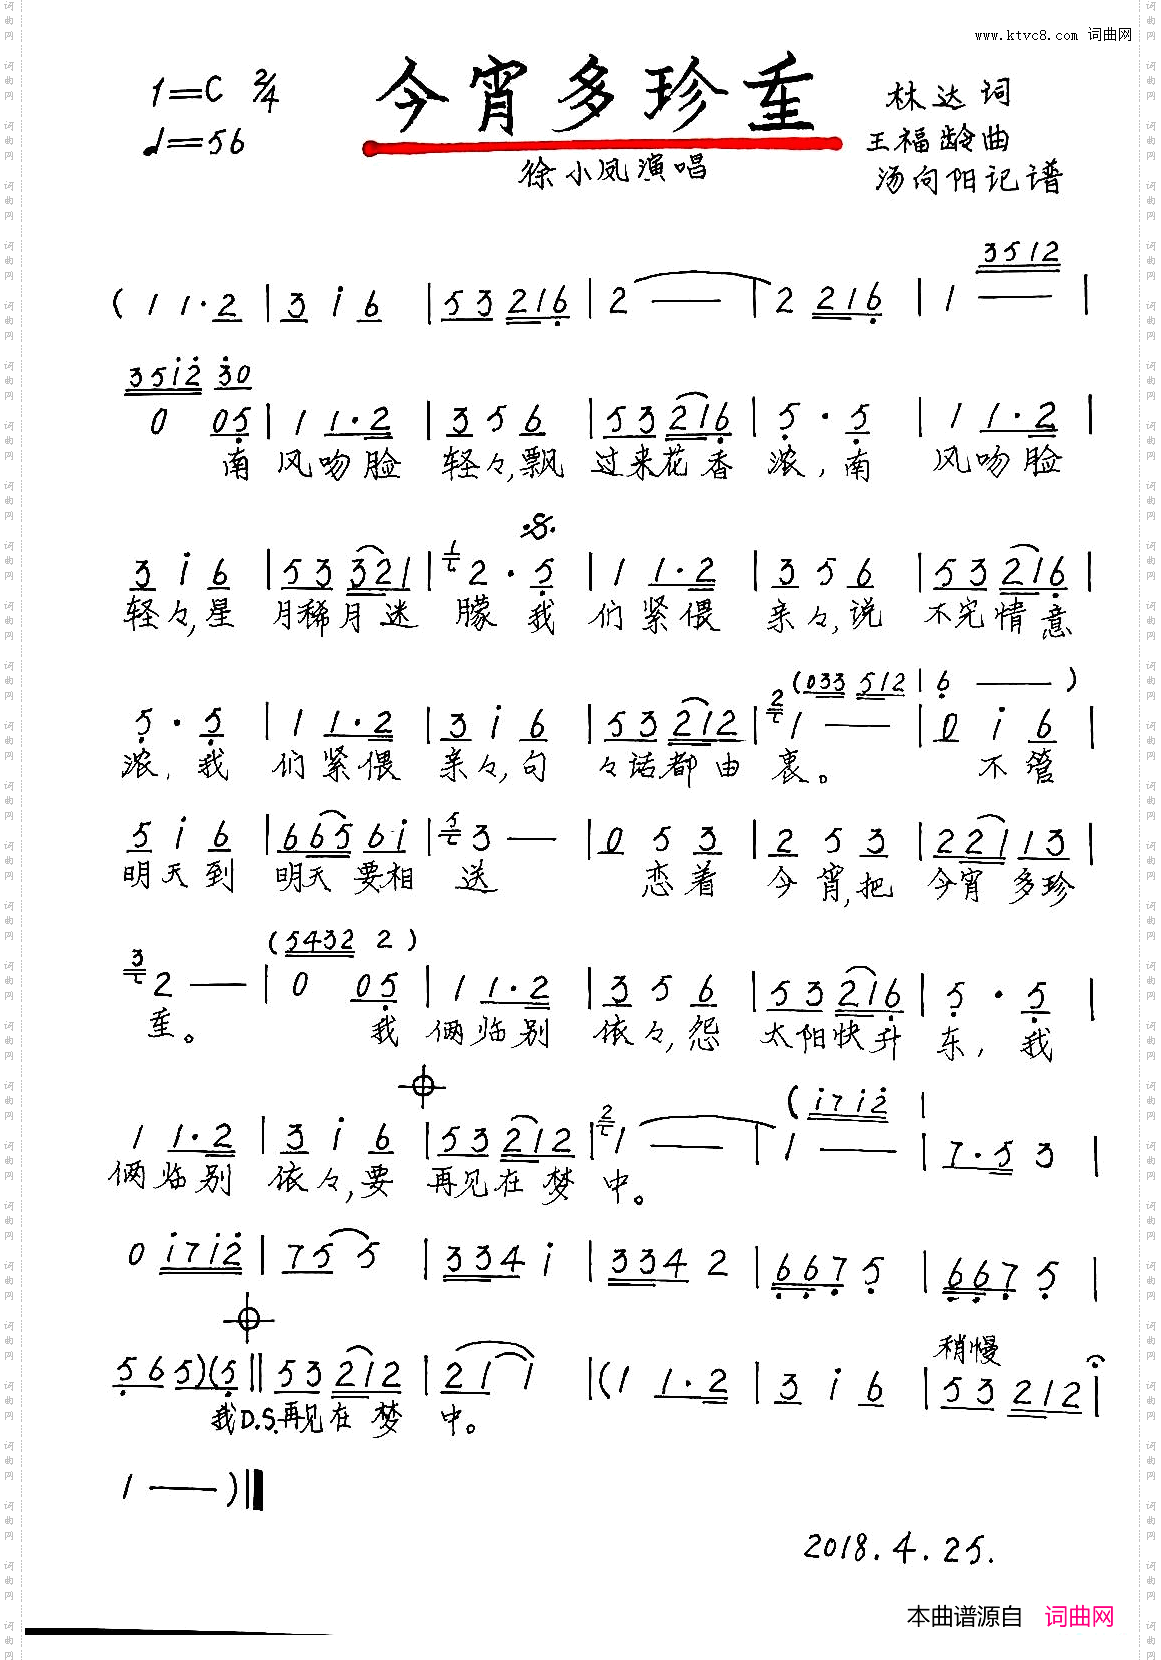 www.ktvc8.com 词曲网
1=C 2/4
♩=56
今宵多珍重
徐小凤演唱
林达词
王福龄曲
汤向阳记谱
3512
( 1 1·2 | 3 i 6 | 53 216 | 2 — | 2 216 | 1 — |
35i2 30
0 05 | 1 1·2 | 3 5 6 | 53 216 | 5 · 5 | 1 1·2 |
南 风吻脸 轻々,飘 过来花香 浓,南 风吻脸
3 i 6 | 53 321 | 2 · 5 | 1 1·2 | 3 5 6 | 53 216 |
轻々,星 月稀月迷 朦 我 们紧偎 亲々,说 不完情意
(033 512 | 6 — )
5 · 5 | 1 1·2 | 3 i 6 | 53 212 | 1 — | 0 i 6 |
浓,我 们紧偎 亲々,句 々话都由 衷。 不管
5 i 6 | 665 6i | 3 — | 0 5 3 | 2 5 3 | 221 13 |
明天到 明天要相 送 恋着 今宵,把 今宵多珍
(5432 2 )
2 — | 0 05 | 1 1·2 | 3 5 6 | 53 216 | 5 · 5 |
重。 我 俩临别 依々,怨 太阳快升 东,我
(i7i2 |
1 1·2 | 3 i 6 | 53 212 | 1 — | 1 — | 7·5 3 |
俩临别 依々,要 再见在梦 中。
0 i7i2 | 75 5 | 334 i | 334 2 | 667 5 | 667 5 |
稍慢
565)(5 || 53 212 | 21 1 | (1 1·2 | 3 i 6 | 53 212 i |
我D.S.再见在梦 中。
1 — )||
2018.4.25.
本曲谱源自 词曲网